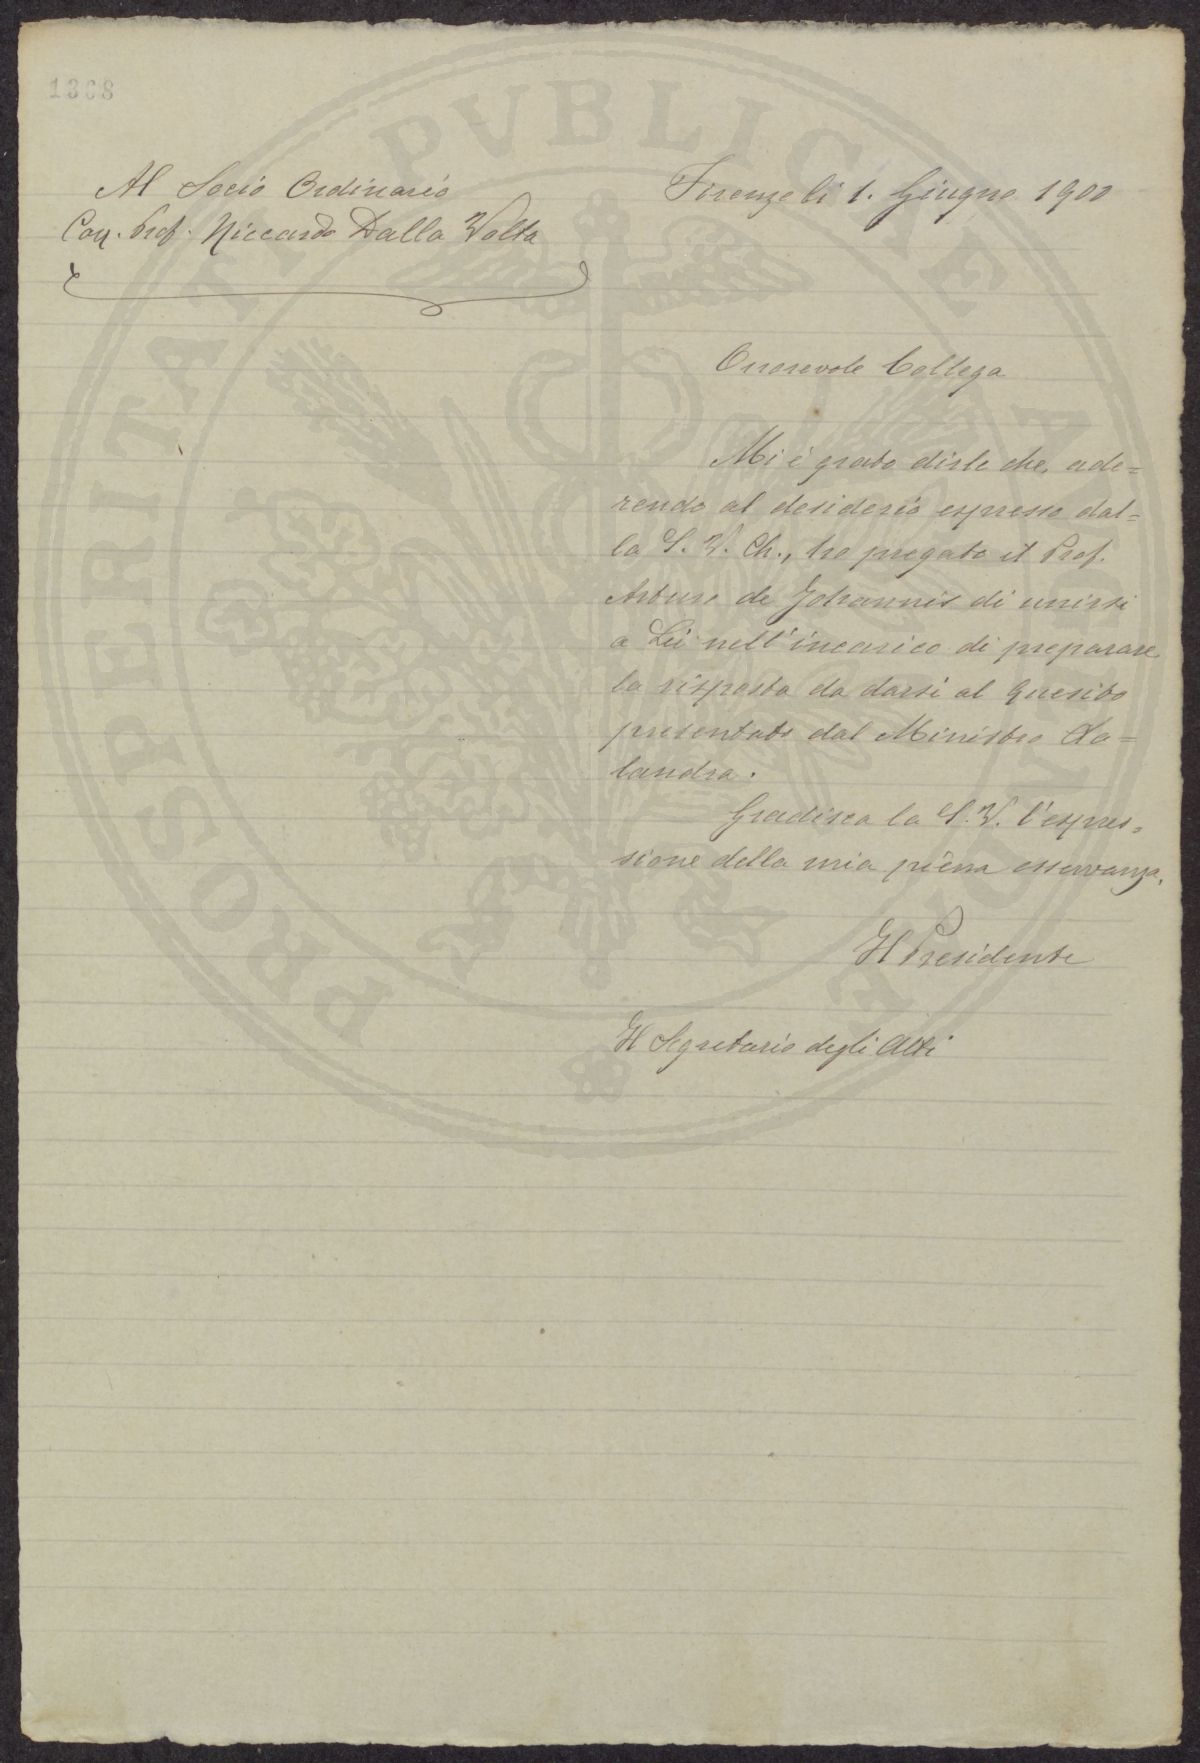 1368
Al Socio Ordinario
Cav. Prof. Riccardo Dalla Volta
Firenze li 1. Giugno 1900
Onorevole Collega
Mi è grato dirle che, ade=
rendo al desiderio espresso dal=
la S. V. Ch., ho pregato il Prof.
Arturo de Johannis di unirsi
a Lei nell'incarico di preparare
la risposta da darsi al Quesito
presentato dal Ministro Sa=
landra.
Gradisca la S. V. l'espres=
sione della mia piena osservanza.
Il Presidente
Il Segretario degli Atti
PROSPERITATI PVBLICAE AVGENDAE